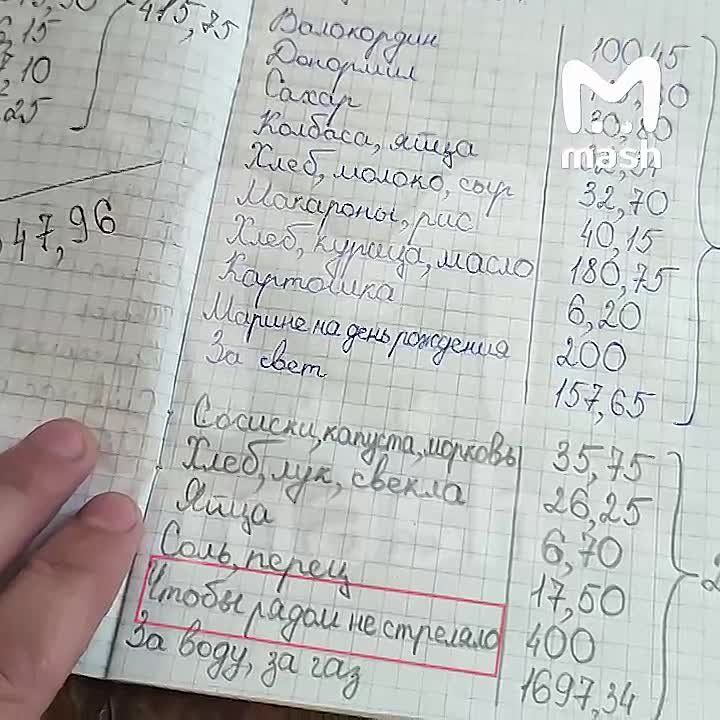 15
10
25
475,75
47,96
Валокордин 100,15
Донормил
Сахар 30,80
Колбаса, яйца
Хлеб, молоко, сыр 32,70
Макароны, рис 40,15
Хлеб, курица, масло 180,75
Картошка 6,20
Марине на день рождения 200
За свет 157,65
Сосиски, капуста, морковь 35,75
Хлеб, лук, свекла 26,25
Яйца 6,70
Соль, перец 17,50
Чтобы рядом не стреляло 400
За воду, за газ 1697,34
mash